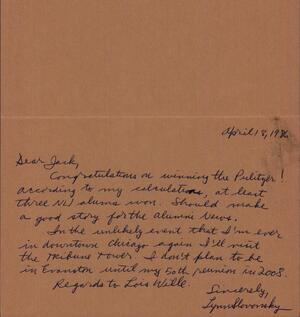 April 18, 1986
Dear Jack,
Congratulations on winning the Pulitzer!
According to my calculations, at least
three NU alums won. Should make
a good story for the Alumni News.
In the unlikely event that I'm ever
in downtown Chicago again I'll visit
the Tribune Tower. I don't plan to be
in Evanston until my 50th reunion in 2008.
Regards to Lois Wille.
Sincerely,
Lynn Slovonsky